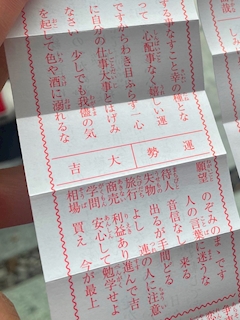 する事なすこと幸の種とな
って心配事なく嬉しい運
ですからわき目ふらず一心
に自分の仕事大事とはげみ
なさい 少しでも我儘の気
を起して色や酒に溺れるな
運勢 大吉
願望 のぞみのまゝです
人の言葉に迷うな
待人 音信なし 来る
失物 出るが手間どる
旅行 よし 連の人に注意
商売 利益あり進んで吉
学問 安心して勉学せよ
相場 買え 今が最上